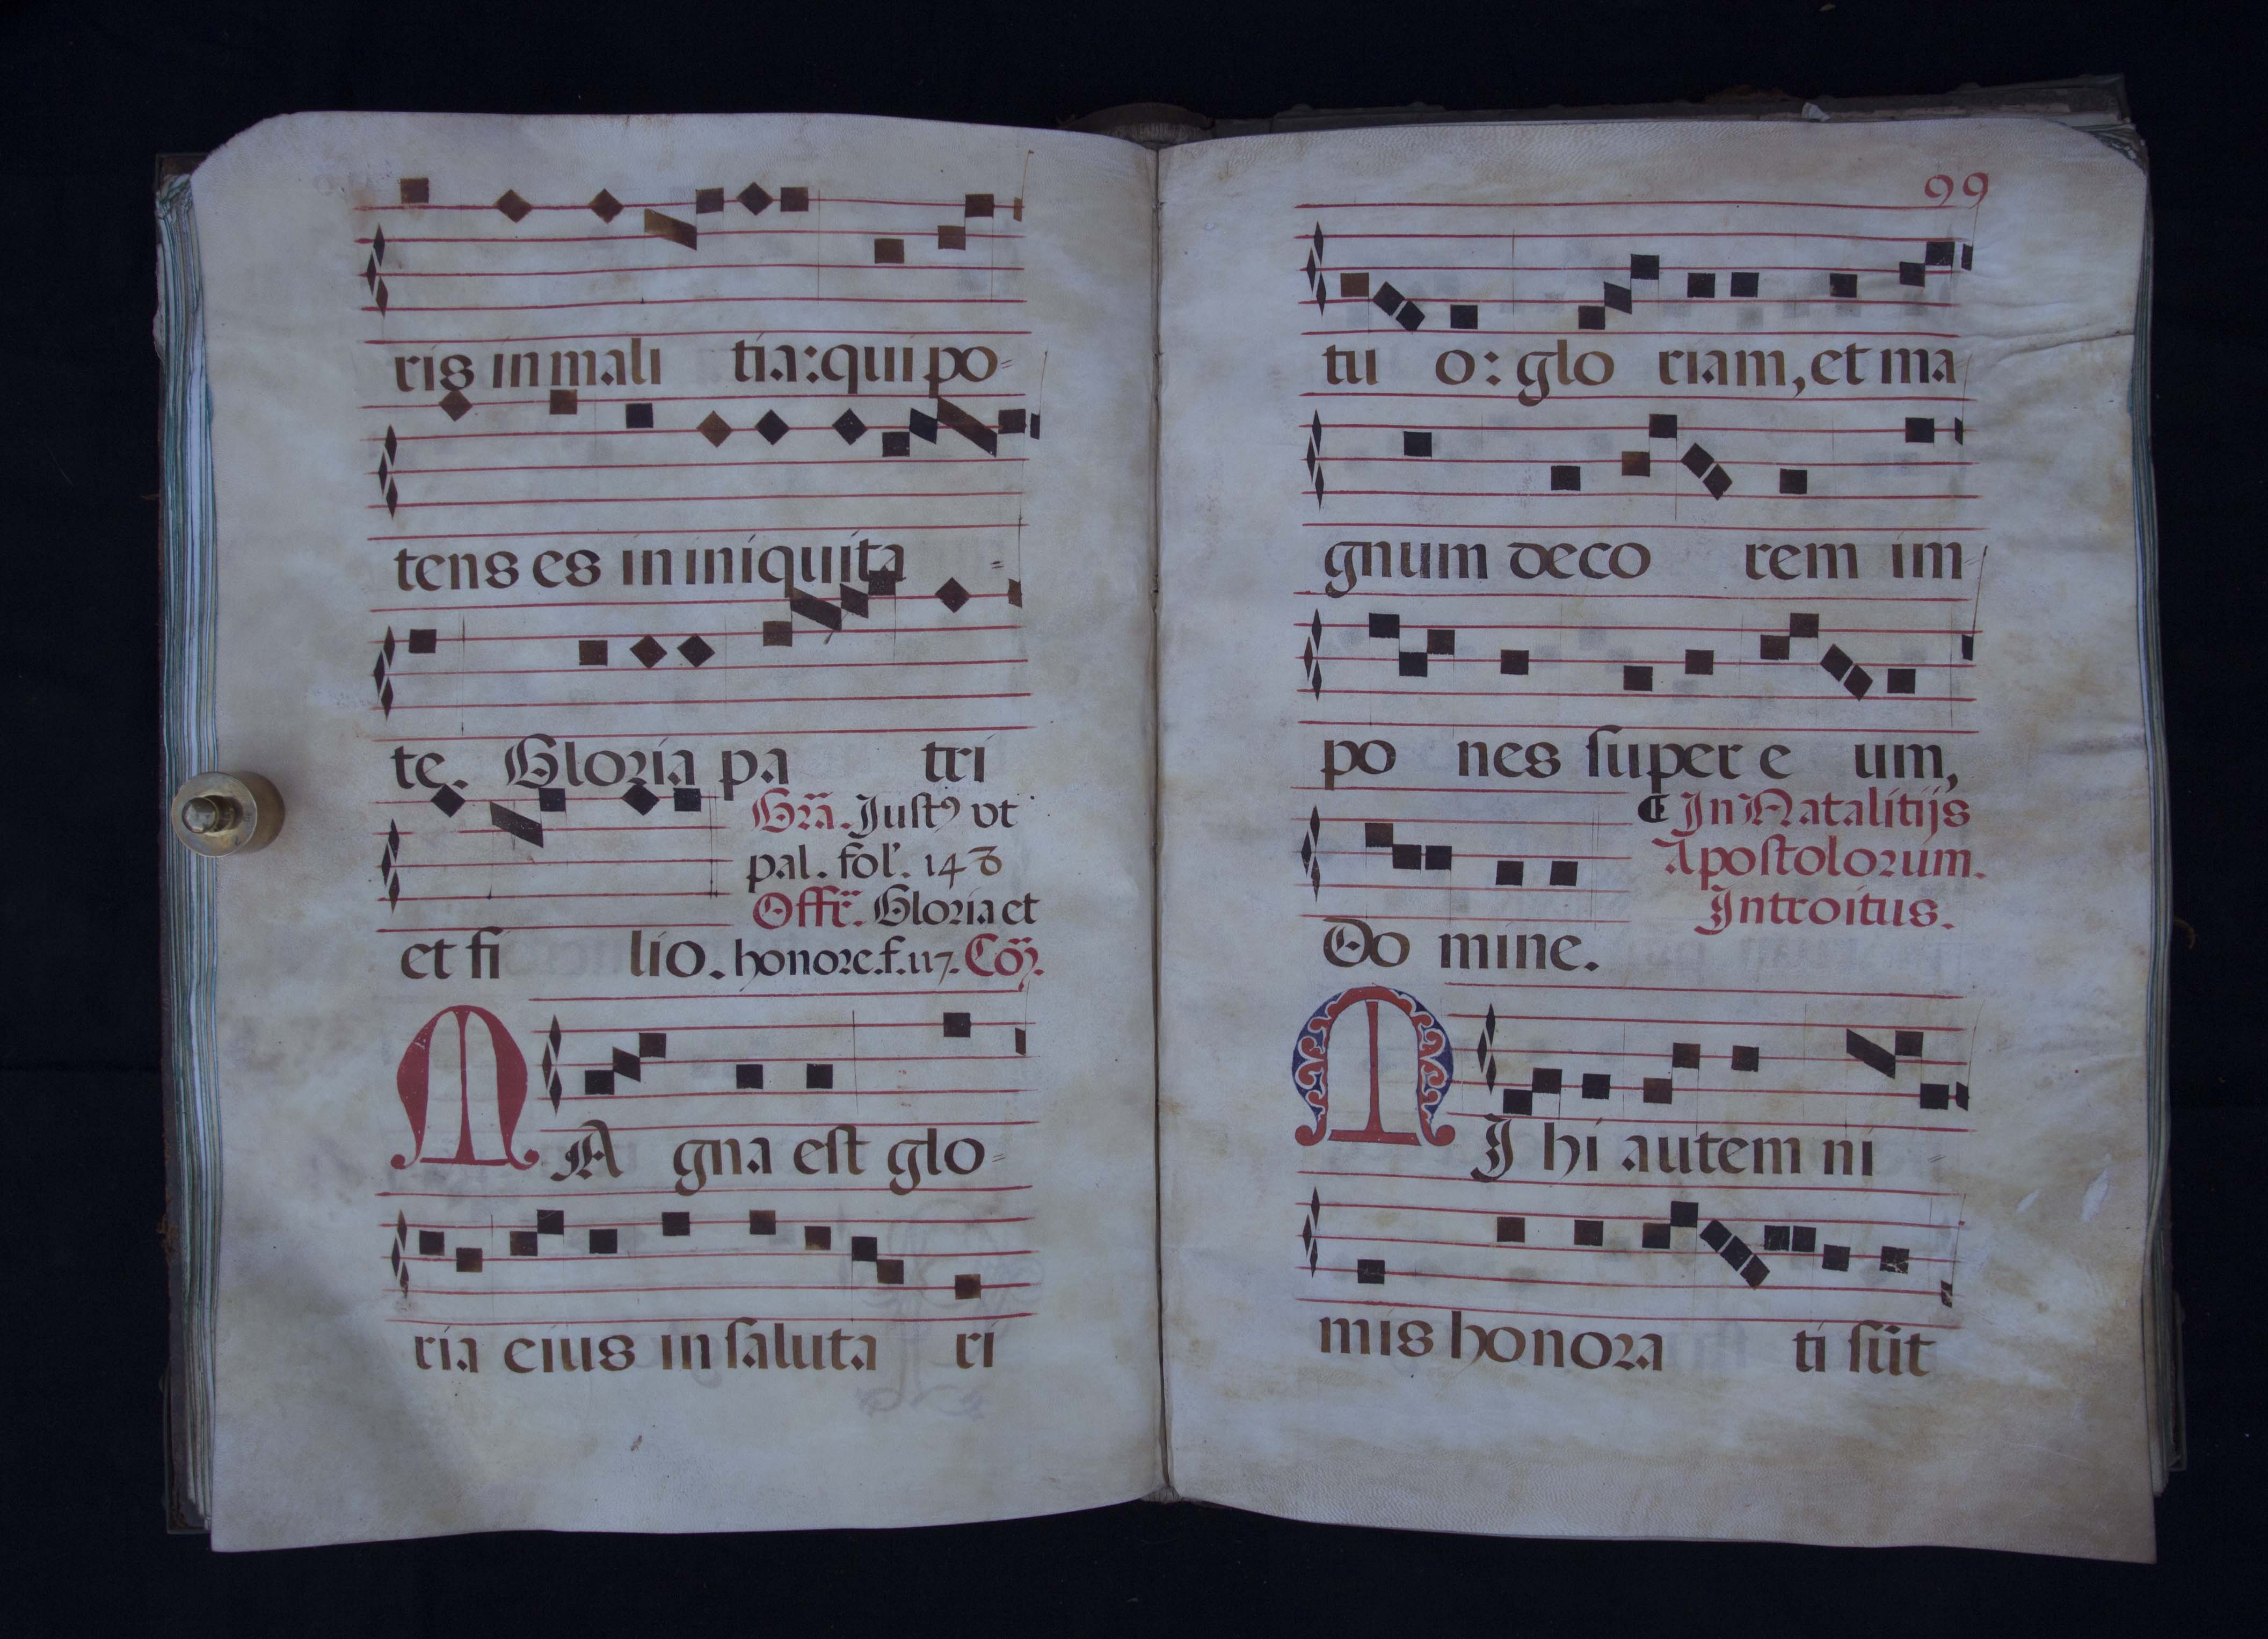 ris in mali tia: qui po=
tens es in iniquita =
te. Gloria pa tri
Gra᷃. Justꝰ vt
pal. fol'. 148
Offr̃. Gloria et
et fi lio. honore. f. 117. Cõ.
MA gna est glo=
ria eius in saluta ri
99
tu o: glo riam, et ma
gnum deco rem im=
po nes super e um,
¶ In Natalitijs
Apostolorum.
Introitus.
Do mine.
MJ hi autem ni =
mis honora ti sũt